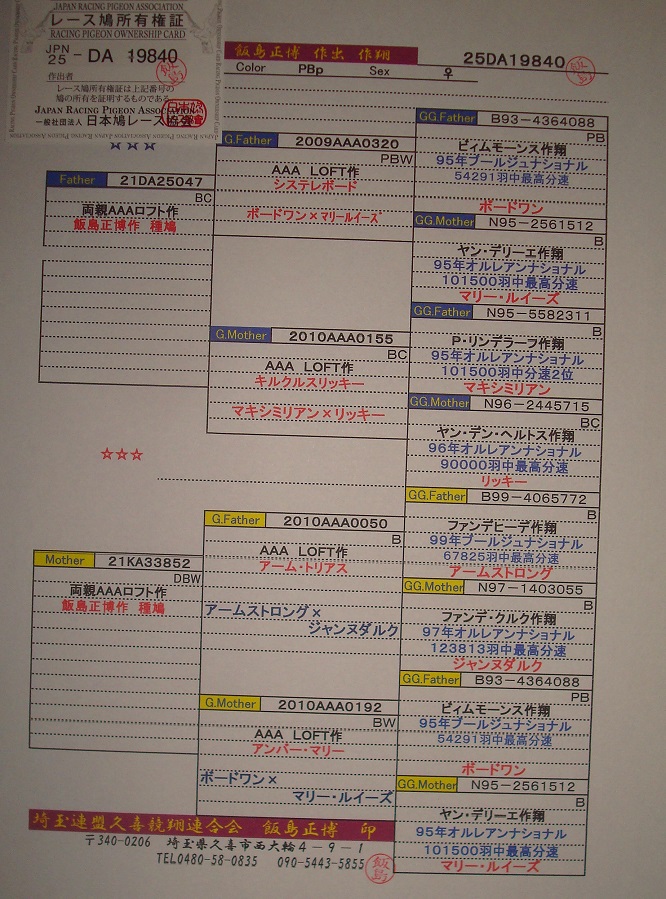 JAPAN RACING PIGEON ASSOCIATION
レース鳩所有権証
RACING PIGEON OWNERSHIP CARD
JPN
25 - DA 19840
作出者
飯島
レース鳩所有権証は上記番号の
鳩の所有を証明するものである
JAPAN RACING PIGEON ASSOCIATION
一般社団法人 日本鳩レース協会
飯島正博 作出 作翔
25DA19840
飯島
Color PBp Sex ♀
☆☆☆
Father 21DA25047
BC
両親AAAロフト作
飯島正博作 種鳩
G.Father 2009AAA0320
PBW
AAA LOFT作
システレボード
ボードワン×マリールイーズ
G.Mother 2010AAA0155
BC
AAA LOFT作
キルクルスリッキー
マキシミリアン×リッキー
GG.Father B93-4364088
PB
ビィムモーンス作翔
95年ブールジュナショナル
54291羽中最高分速
ボードワン
GG.Mother N95-2561512
B
ヤン・デリーエ作翔
95年オルレアンナショナル
101500羽中最高分速
マリー・ルイーズ
GG.Father N95-5582311
B
P・リンデラーフ作翔
95年オルレアンナショナル
101500羽中分速2位
マキシミリアン
GG.Mother N96-2445715
BC
ヤン・デン・ヘルトス作翔
96年オルレアンナショナル
90000羽中最高分速
リッキー
☆☆☆
Mother 21KA33852
DBW
両親AAAロフト作
飯島正博作 種鳩
G.Father 2010AAA0050
B
AAA LOFT作
アーム・トリアス
アームストロング×
ジャンヌダルク
G.Mother 2010AAA0192
BW
AAA LOFT作
アンバー・マリー
ボードワン×
マリー・ルイーズ
GG.Father B99-4065772
B
ファンデヒーデ作翔
99年ブールジュナショナル
67825羽中最高分速
アームストロング
GG.Mother N97-1403055
B
ファンデ・クルク作翔
97年オルレアンナショナル
123813羽中最高分速
ジャンヌダルク
GG.Father B93-4364088
PB
ビィムモーンス作翔
95年ブールジュナショナル
54291羽中最高分速
ボードワン
GG.Mother N95-2561512
B
ヤン・デリーエ作翔
95年オルレアンナショナル
101500羽中最高分速
マリー・ルイーズ
埼玉連盟久喜競翔連合会 飯島正博 印
〒340-0206 埼玉県久喜市西大輪4-9-1
TEL0480-58-0835 090-5443-5855
飯島